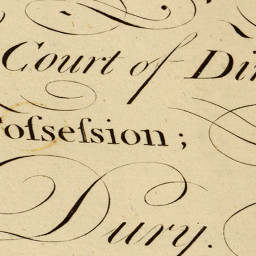 Court of Di
ofsefsion;
Dury.